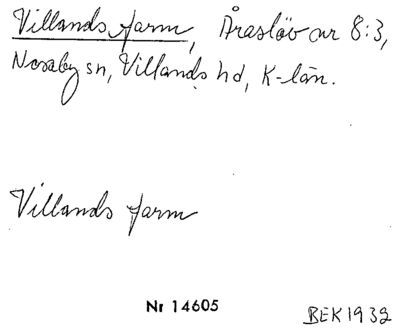 Villands farm, Åraslöv nr 8:3,
Nosaby sn, Villands hd, K-län.
Villands farm
Nr 14605
BEK1932